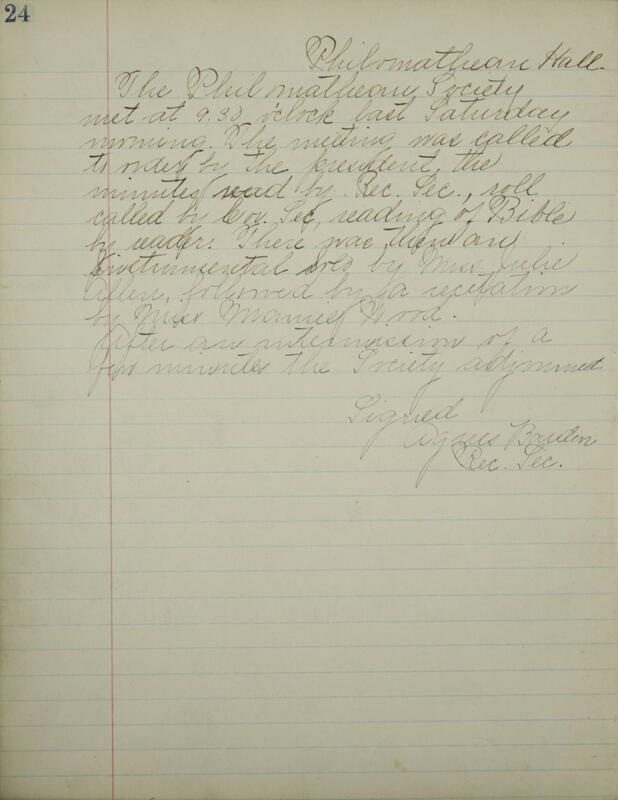 24
Philomathean Hall.
The Philomathean Society
met at 9.30 o'clock last Saturday
morning. The meeting was called
to order by the president, the
minutes read by Rec. Sec., roll
called by Cor. Sec, reading of Bible
by reader. There was then an
instrumental solo by Miss Julie
Allen, followed by a recitation
by Miss Mamie Wood.
After an intermission of a
few minutes the Society adjourned.
Signed
Agnes Barden
Rec. Sec.